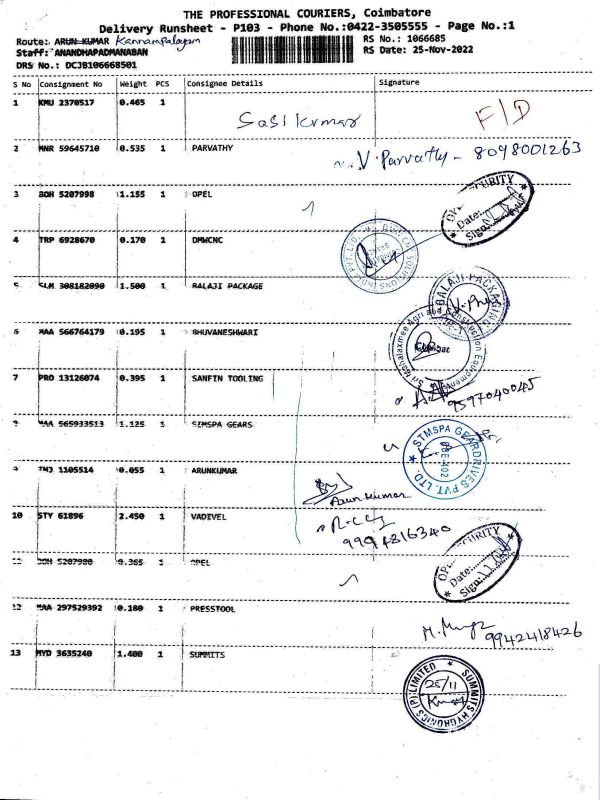 THE PROFESSIONAL COURIERS, Coimbatore
Delivery Runsheet - P103 - Phone No.:0422-3505555 - Page No.:1
Route: ARUN KUMAR Kannampalayam
RS No. : 1066685
Staff: ANANDHAPADMANABAN
RS Date: 25-Nov-2022
DRS No.: DCJB106668501
S No Consignment No Weight PCS Consignee Details Signature
1 KMU 2370517 0.465 1
Sasikumar F/D
2 MNR 59645710 0.535 1 PARVATHY
V. Parvathy - 8098001263
3 BOH 5207998 1.155 1 OPEL
SECURITY
Date:
Sign:
4 TRP 6928670 0.170 1 DMWCNC
5 SLM 308182090 1.500 1 BALAJI PACKAGE
BALAJI PACKAGING
6 MAA 566764179 0.195 1 BHUVANESHWARI
Sri Mahalaxmee Agri and Construction Equipments
7 PRO 13126074 0.395 1 SANFIN TOOLING
9597040045
MAA 565933513 1.125 1 SIMSPA GEARS
STMSPA GEARDRIVES PVT. LTD.
9 TMJ 1105514 0.055 1 ARUNKUMAR
Arun Kumar
10 STY 61896 2.450 1 VADIVEL
9994816340
BOH 5207980 0.365 1 OPEL
SECURITY
Date:
Sign:
12 MAA 297529392 0.180 1 PRESSTOOL
9942418426
13 MYD 3635240 1.400 1 SUMMITS
SUMMITS HYGRONICS (P) LIMITED
25/11